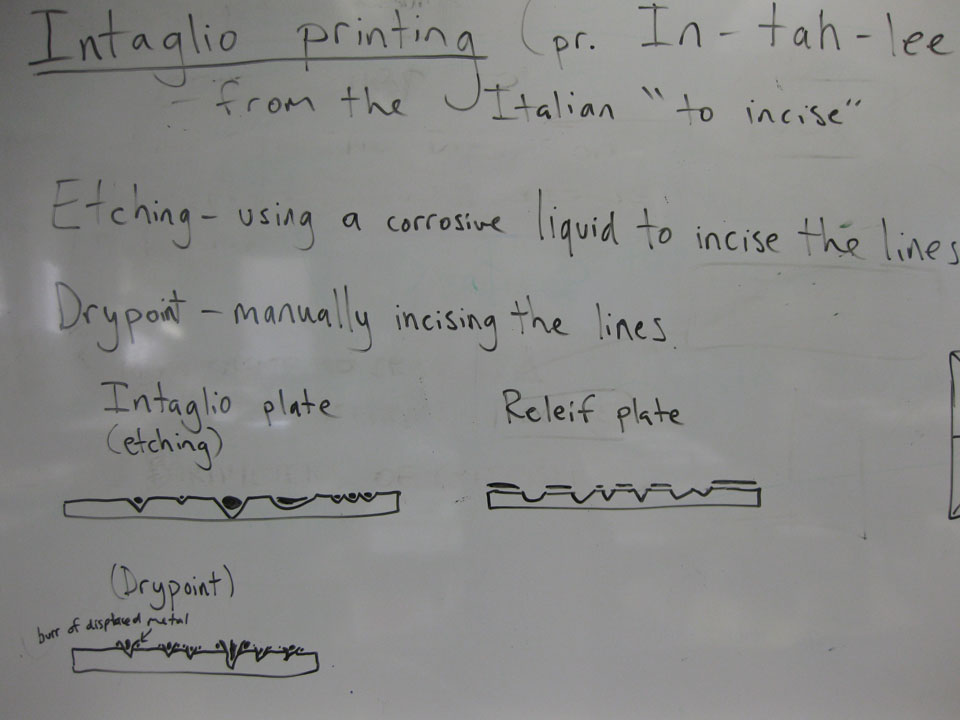 Intaglio printing (pr. In-tah-lee
- from the Italian "to incise"
Etching - using a corrosive liquid to incise the lines
Drypoint - manually incising the lines.
Intaglio plate
(etching)
Releif plate
(Drypoint)
burr of displaced metal